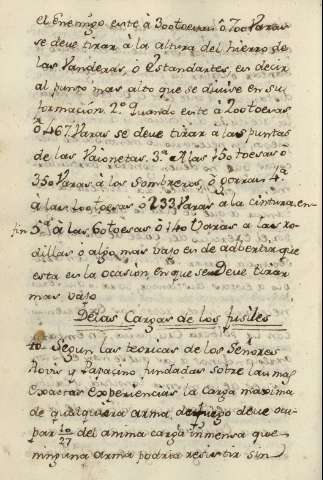 el Enemigo esté à 300toesas ô 700 Varas
se deve tirar à la altura del hierro de
las Vanderas, ò Estandartes, es decir
al punto mas alto que se divise en su
formación. 2.º Quando esté à 200toesas
ô 467 Varas se deve tirar a las puntas
de las Vaionetas. 3.ª A las 150toesas ô
350 Varas à los Sombreros, ò gorras 4.ª
a las 100toesas ô 233 Varas à la cintura, en-
fin 5.ª à las 60toesas ô 140 Varas a las ro-
dillas ô algo mas vajo es de advertir que
esta es la ocasión, en que se Deve tirar
mas vajo
De las Cargas de los fusiles
10 Segun las teoricas de los Señores
y Papacino fundadas sobre las mas
exactas experiencias la carga maxima
de qualquiera arma de fuego deve ocu-
par 10/27 del anima carga inmensa que
ninguna arma podria resistir sin